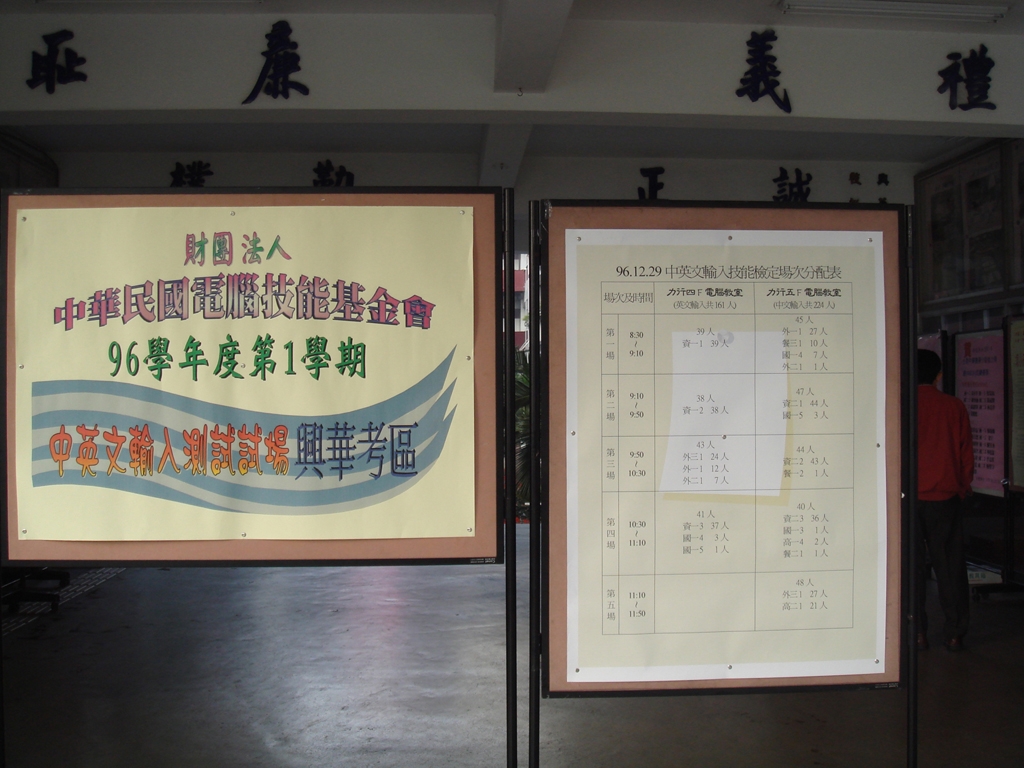 恥 廉 義 禮
樸 勤 正 誠
財團法人
中華民國電腦技能基金會
96學年度第1學期
中英文輸入測試試場 興華考區
96.12.29 中英文輸入技能檢定場次分配表
場次及時間 力行四F電腦教室 (英文輸入共161人) 力行五F電腦教室 (中文輸入共224人)
第一場 8:30 ~ 9:10
39人
資一1 39人
45人
外一1 27人
餐三1 10人
國一4 7人
外二1 1人
第二場 9:10 ~ 9:50
38人
資一2 38人
47人
資二1 44人
國一5 3人
第三場 9:50 ~ 10:30
43人
外三1 24人
外一1 12人
外二1 7人
44人
資二2 43人
餐一2 1人
第四場 10:30 ~ 11:10
41人
資一3 37人
國一4 3人
國一5 1人
40人
資二3 36人
國一3 1人
高一4 2人
餐二1 1人
第五場 11:10 ~ 11:50
48人
外三1 27人
高二1 21人